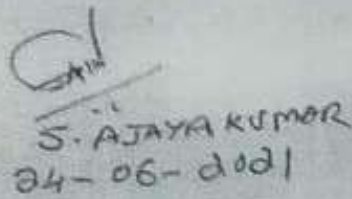 S. AJAYA KUMAR
24-06-2021